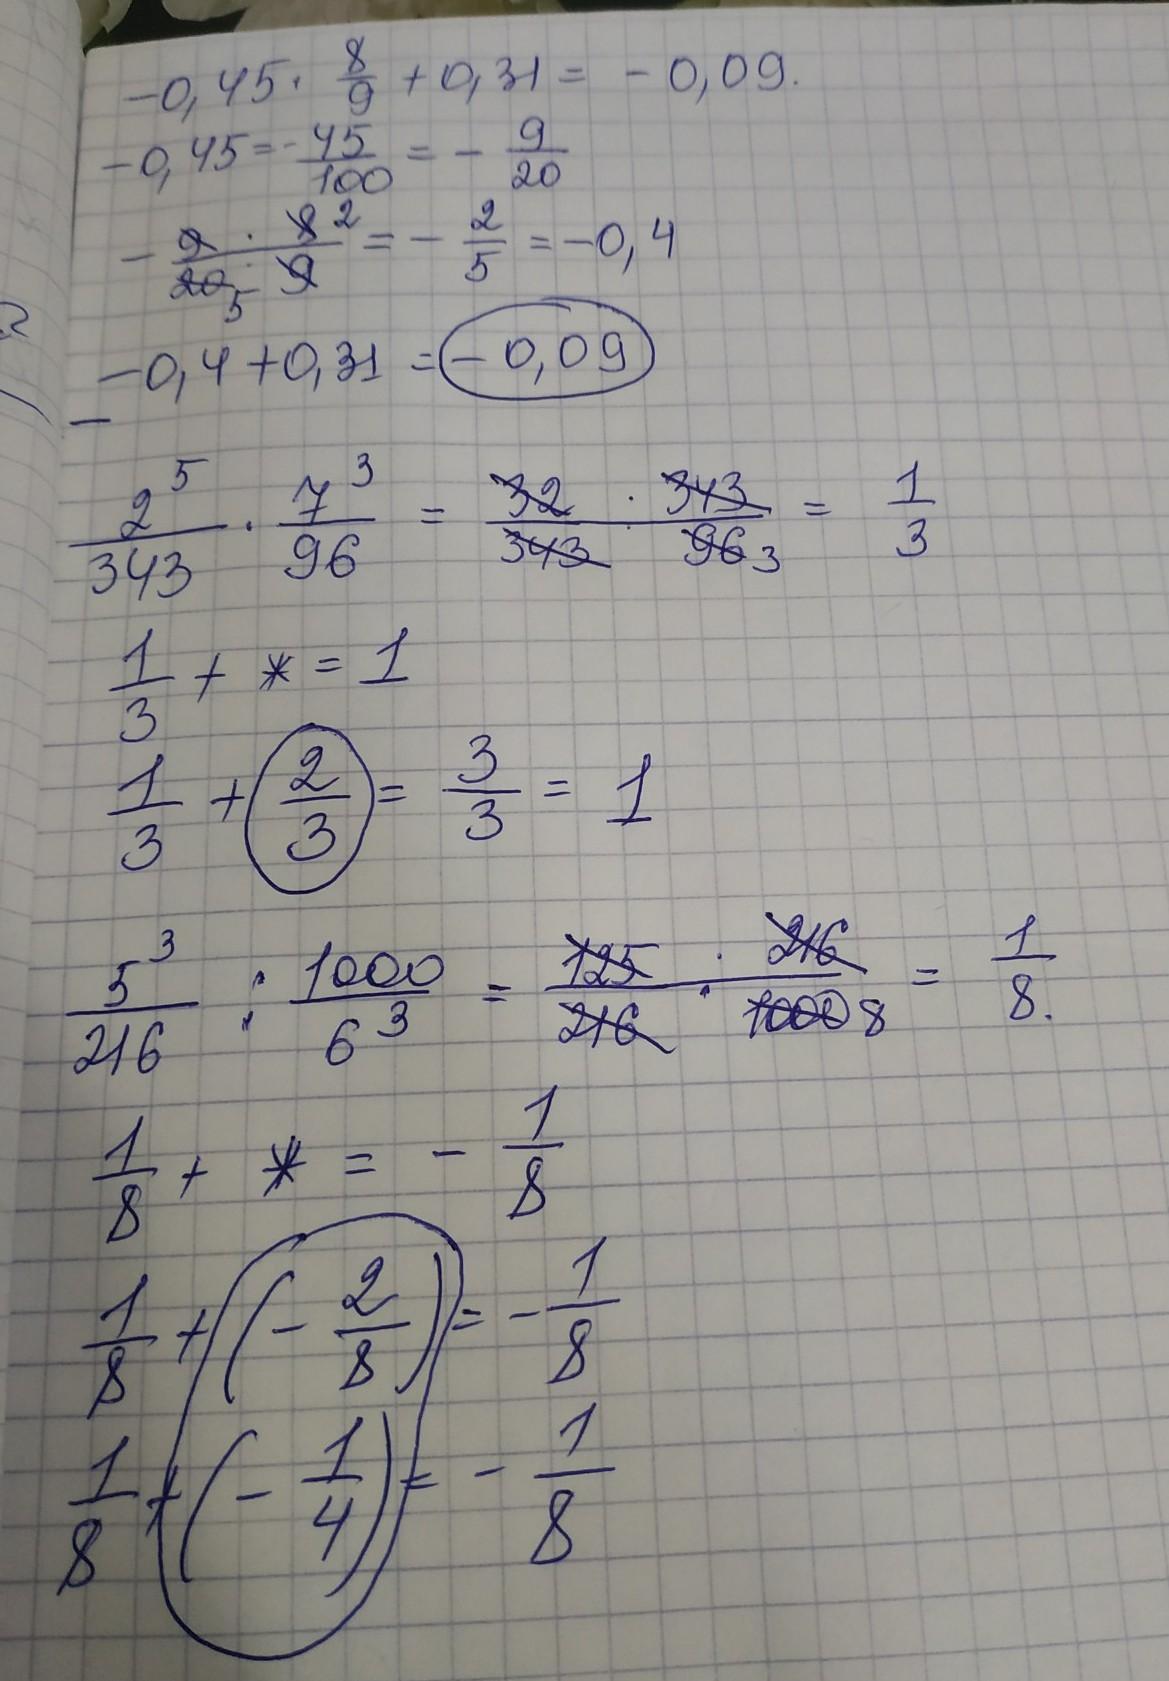 -0,45 · 8/9 + 0,31 = -0,09.
-0,45 = -45/100 = -9/20
-(9 · 8 2)/(20 5 · 9) = -2/5 = -0,4
-0,4 + 0,31 = -0,09
-
2^5/343 · 7^3/96 = (32 · 343)/(343 · 96 3) = 1/3
1/3 + * = 1
1/3 + 2/3 = 3/3 = 1
5^3/216 : 1000/6^3 = (125 · 216)/(216 · 1000 8) = 1/8.
1/8 + * = -1/8
1/8 + (-2/8) = -1/8
1/8 + (-1/4) = -1/8